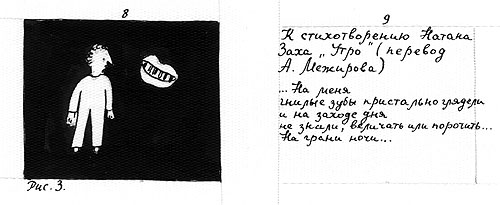 8
Рис. 3.
9
К стихотворению Натана
Заха „Утро" (перевод
А. Межирова)
...На меня
гнилые зубы пристально глядели
и на заходе дня
не знали, величать или порочить...
На грани ночи...